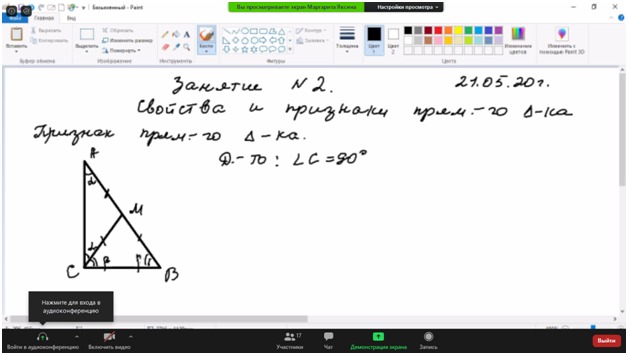 Безымянный - Paint
Вы просматриваете экран Маргарита Яксина
Настройки просмотра
Файл Главная Вид
Вставить
Вырезать
Копировать
Буфер обмена
Выделить
Обрезать
Изменить размер
Повернуть
Изображение
Инструменты
Кисти
Контур
Заливка
Фигуры
Толщина
Цвет 1
Цвет 2
Цвета
Изменение цветов
Изменить с помощью Paint 3D
Занятие N2. 21.05.20г.
Свойства и признаки прям.-го Δ-ка
Признак прям.-го Δ-ка.
Д.-то: ∠C=90°
A
α
M
α
β
β
C
B
Нажмите для входа в аудиоконференцию
Войти в аудиоконференцию
Включить видео
17
Участники
Чат
Демонстрация экрана
Запись
Выйти